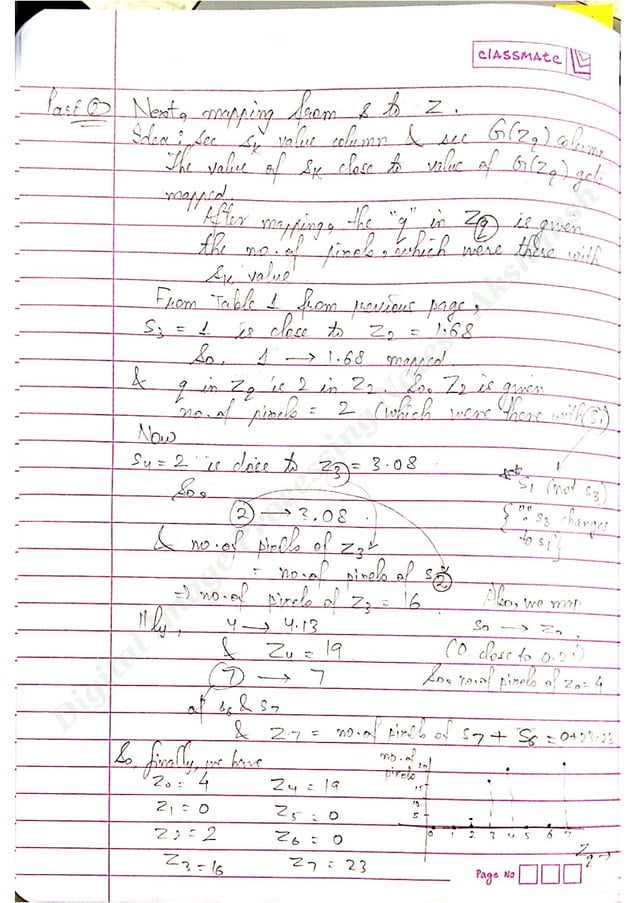 classmate
Part ② Next, mapping from s to Z.
Idea: see sₖ value column & see G(Zq) column
The value of sₖ close to value of G(Zq) gets
mapped
After mapping, the "q" in Zq is given
the no. of pixels, which were there with
sₖ value
From Table 1 from previous page,
S₃ = 1 is close to Z₂ = 1.68
So, 1 → 1.68 mapped
& q in Zq is 2 in Z₂. So, Z₂ is given
no. of pixels = 2 (which were there with s₁)
Now
S₄ = 2 is close to Z₃ = 3.08
S₁ (not s₃)
So,
② → 3.08
{∵ s₃ changes
to s₁}
& no. of pixels of Z₃
= no. of pixels of s②
⇒ no. of pixels of Z₃ = 16
Also, we map
s₀ → Z₀
||ly, 4 → 4.13
& Z₄ = 19
(0 close to 0.21)
⑦ → 7
So, no. of pixels of Z₀ = 4
of s₆ & s₇
& Z₇ = no. of pixels of S₇ + S₆ = 0+23=23
So, finally, we have
Z₀ = 4 Z₄ = 19
Z₁ = 0 Z₅ = 0
Z₂ = 2 Z₆ = 0
Z₃ = 16 Z₇ = 23
no. of
pixels
20
15
10
5
0 1 2 3 4 5 6 7
Zq →
Page No
Digital Image Processing Notes Akshansh